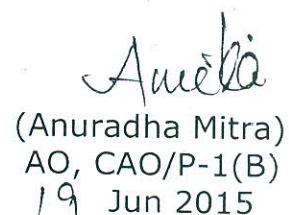 (Anuradha Mitra)
AO, CAO/P-1(B)
19 Jun 2015